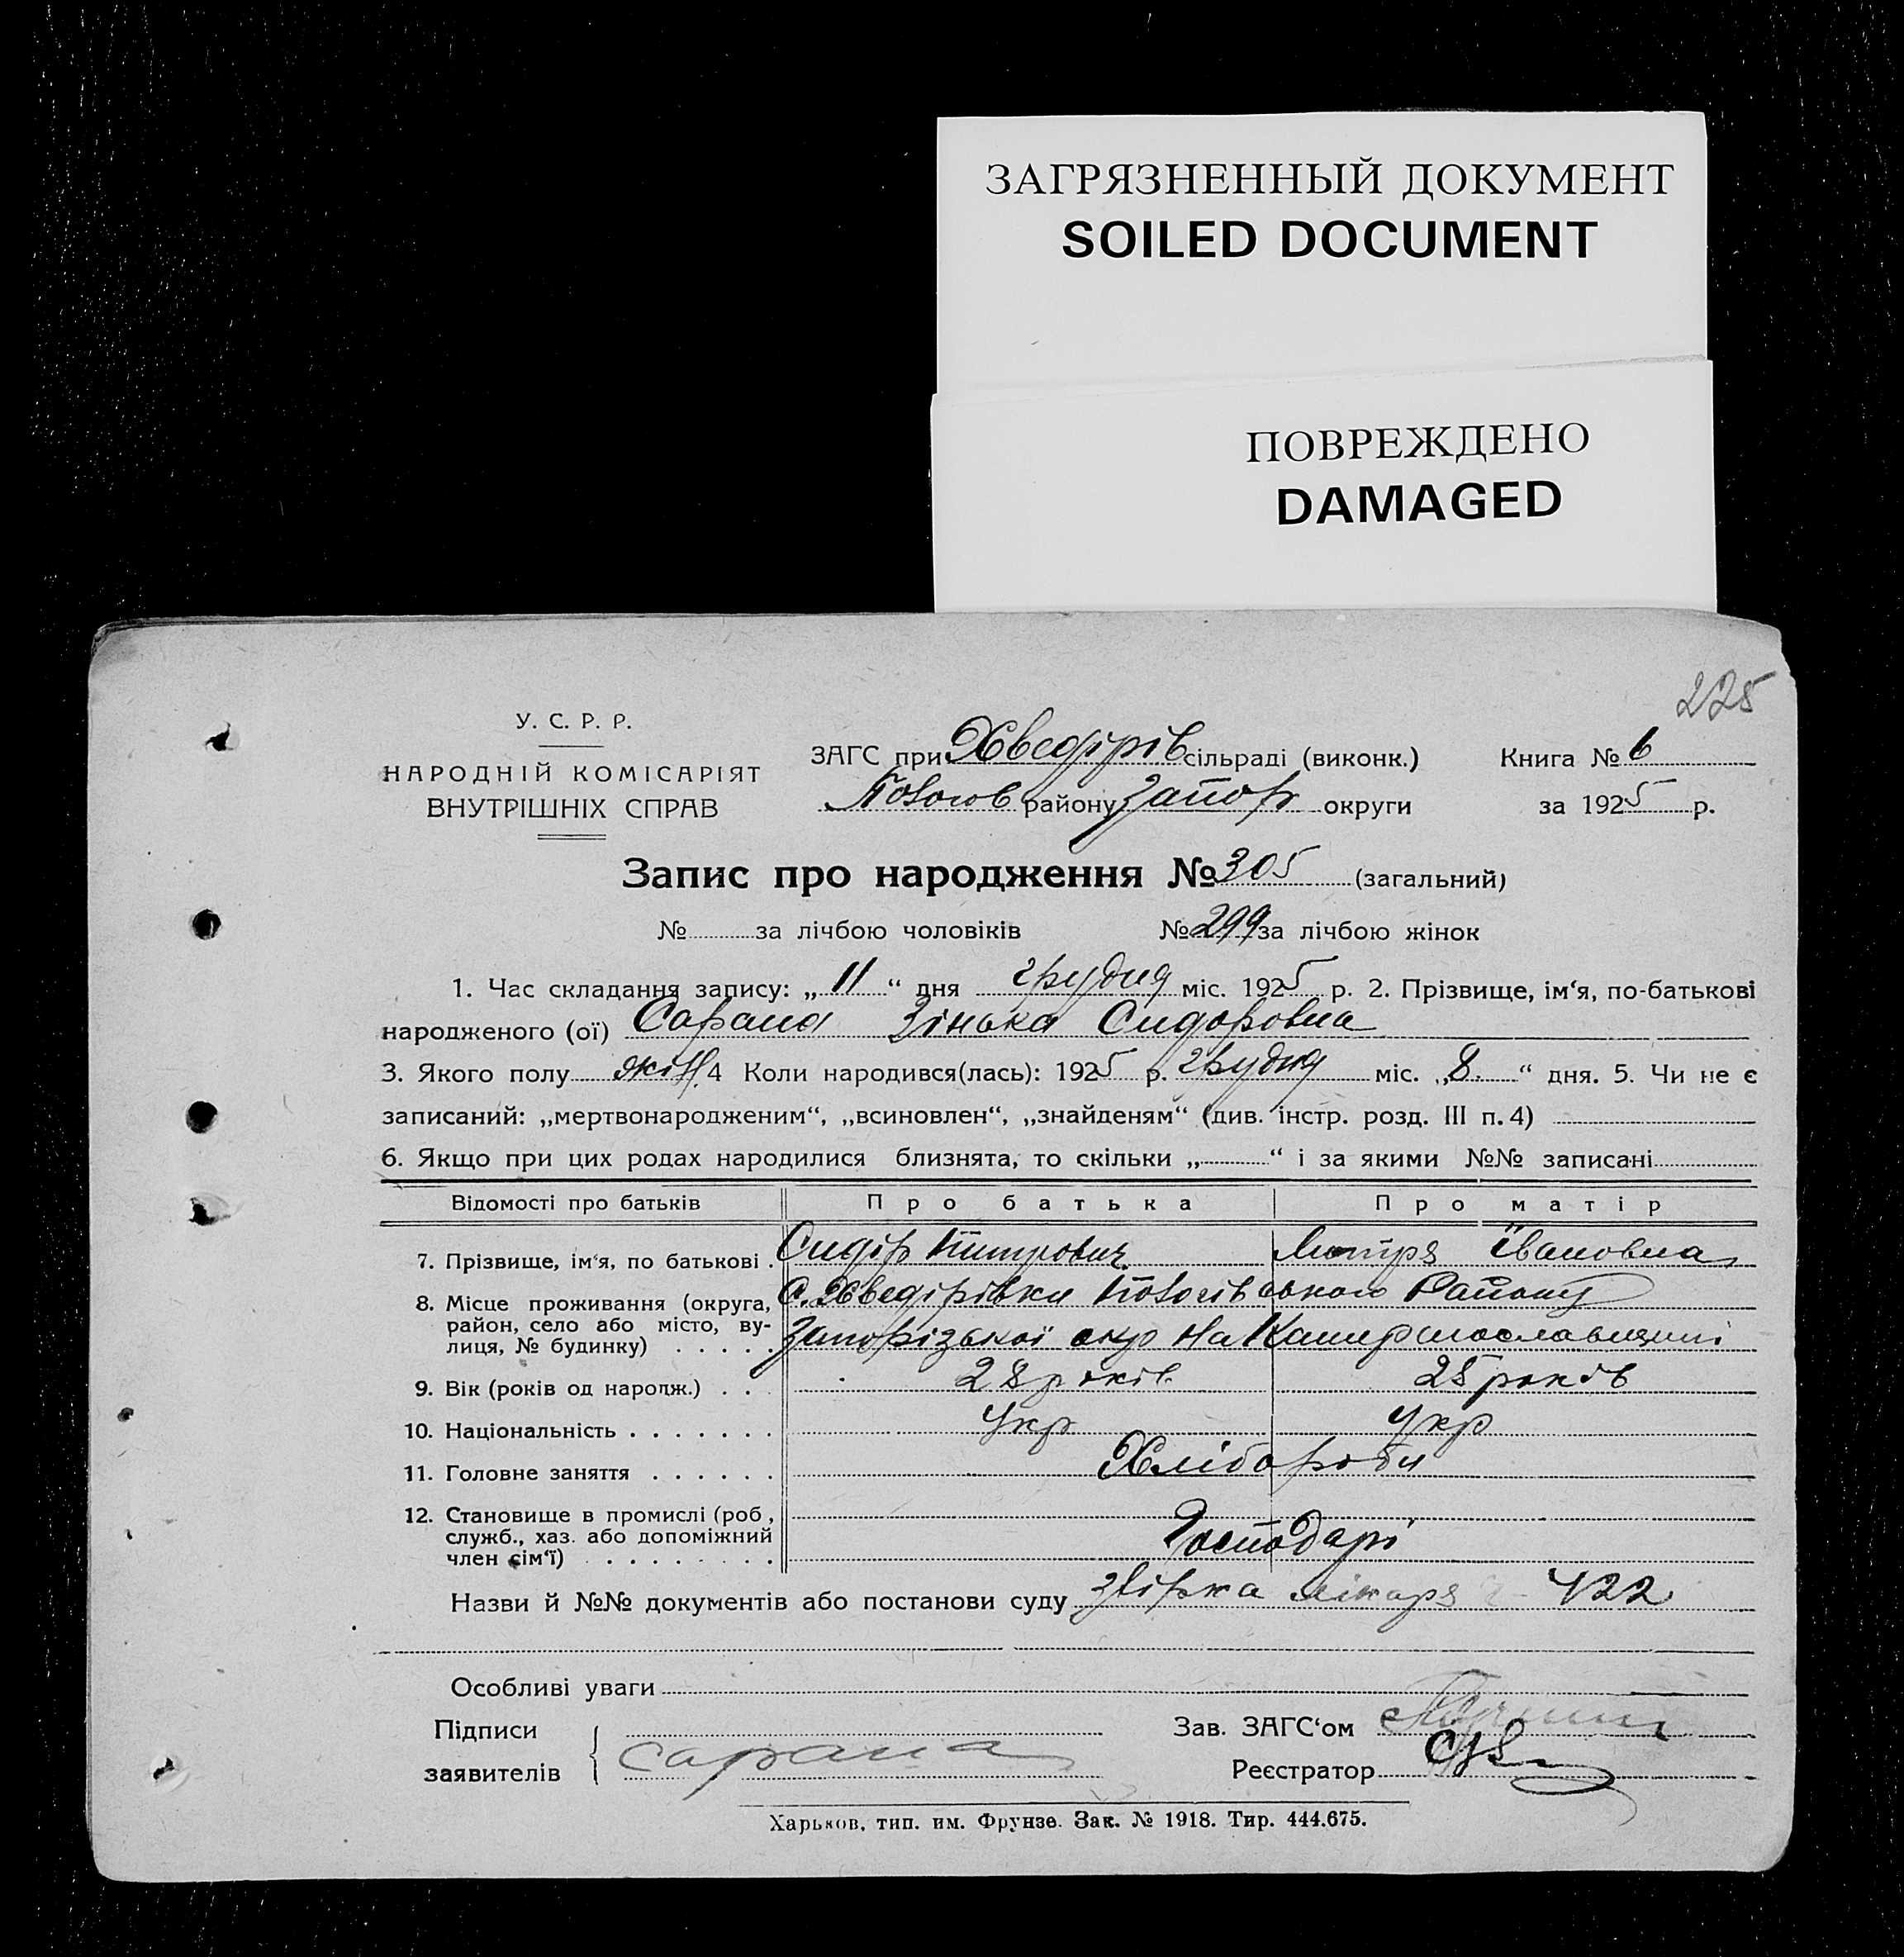 ЗАГРЯЗНЕННЫЙ ДОКУМЕНТ
SOILED DOCUMENT
ПОВРЕЖДЕНО
DAMAGED
225
У. С. Р. Р.
НАРОДНІЙ КОМІСАРІЯТ
ВНУТРІШНІХ СПРАВ
ЗАГС при Хведірів сільраді (виконк.) Книга № 6
Пологов району Запор округи за 1925 р.
Запис про народження № 305 (загальний)
№ за лічбою чоловіків № 299 за лічбою жінок
1. Час складання запису: „ 11 “ дня грудня міс. 1925 р. 2. Прізвище, ім‘я, по-батькові
народженого (ої) Сарана Зінька Сидоровна
3. Якого полу жін. 4 Коли народився(лась): 1925 р. грудня міс. „ 8. “ дня. 5. Чи не є
записаний: „мертвонародженим“, „всиновлен“, „знайденям“ (див. інстр. розд. III п. 4)
6. Якщо при цих родах народилися близнята, то скільки „ “ і за якими №№ записані
Відомості про батьків Про батька Про матір
7. Прізвище, ім‘я, по батькові . Сидір Митрович Мотря Івановна
8. Місце проживання (округа, с. Хведірівки Пологівського Району
район, село або місто, ву-
лиця, № будинку) . . . . . Запорізької окр на Катеринославщині
9. Вік (років од народж.) . . . 28 років 25 років
10. Національність . . . . . . . Укр Укр
11. Головне заняття . . . . . . Хлібороби
12. Становище в промислі (роб.,
служб., хаз. або допоміжний Господарі
член сім‘ї) . . . . . . . . .
Назви й №№ документів або постанови суду звірка лікаря 422
Особливі уваги
Підписи Зав. ЗАГС‘ом
заявителів сарана Реєстратор
Харьков, тип. им. Фрунзе. Зак. № 1918. Тир. 444.675.